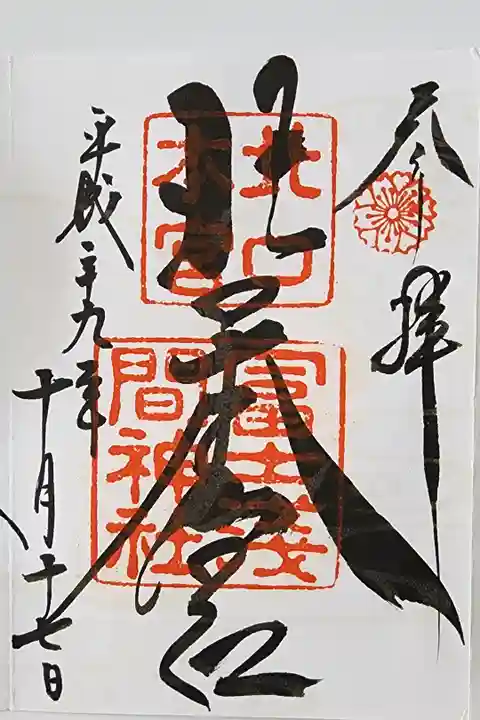 参拝
北口本宮
北口
本宮
冨士淺
間神社
平成二十九年
十月十七日